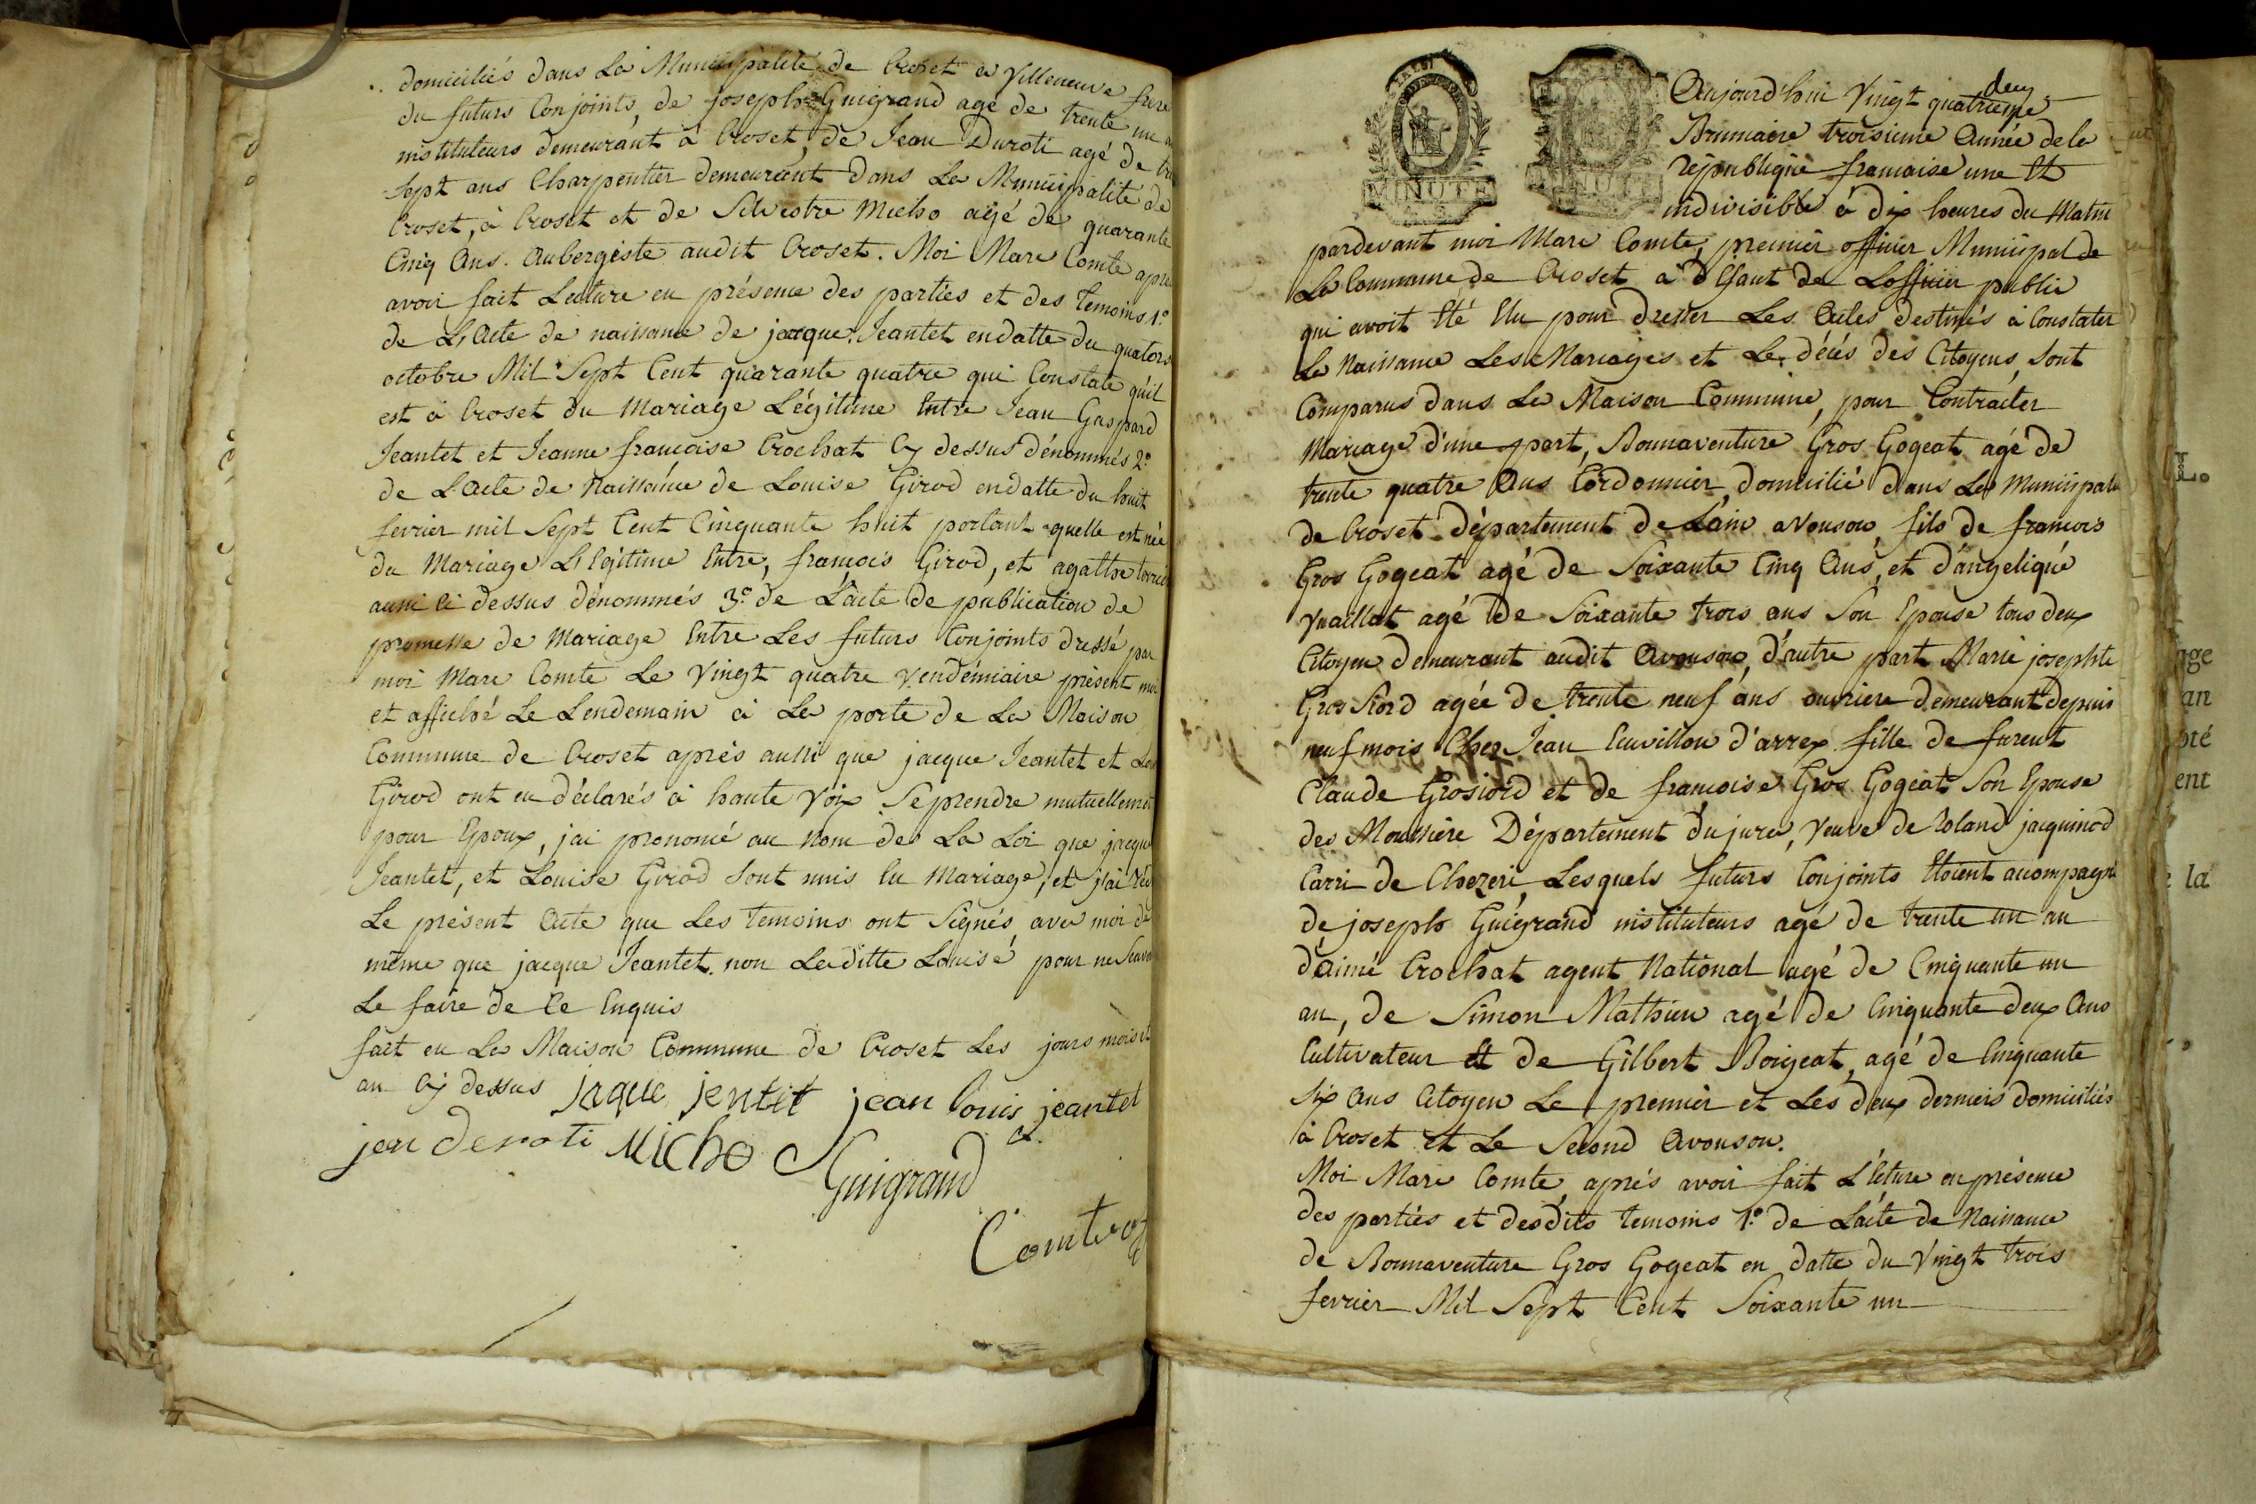 domiciliés dans La Municipalité de Croset a Villeneuve frere
du futurs Conjoints, de joseph Guigrand agé de trente un
instituteurs demeurant à Croset, de Jean Duroti agé de
sept ans Charpentier demeurant dans La Municipalité de
Croset, à Croset et de Silvestre Micho agé de quarante
Cinq Ans. Aubergiste audit Croset. Moi Marc Comte apre
avoir fait Lecture en présence des parties et des temoins 1.º
de L'Acte de naissance de jacque Jeantet en datte du quatorz
octobre Mil Sept Cent quarante quatre qui Constate qu'il
est à Croset du Mariage Légitime Entre Jean Gaspard
Jeantet et Jeanne françoise Crochat Cy dessus dénommés 2.º
de L'acte de Naissance de Louise Girod en datte du huit
fevrier mil Sept Cent Cinquante huit portant quelle est née
du Mariage Légitime Entre, françois Girod, et agathe
aussi Ci dessus dénommés 3.º de L'acte de publication de
promesse de Mariage Entre Les futurs Conjoints dressé par
moi Marc Comte Le Vingt quatre Vendémiaire présent moi
et affiché Le Lendemain à La porte de La Maison
Commune de Croset après aussi que jacque Jeantet et
Girod ont eu déclarés à haute Voix Se prendre mutuellement
pour Epoux, jai prononcé au Nom de La Loi que jacque
Jeantet, et Louise Girod Sont unis En Mariage, et j'ai
Le présent Acte que Les temoins ont Signés avec moi de
même que jacque Jeantet. non Laditte Louise pour ne Scavoir
Le faire de Ce Enquis
fait en La Maison Commune de Croset Les jours mois et
an Cy dessus jaque jentet jean louis jeantet
jean deroti Micho Guigrand
Comte off
MINUTE
Aujourd'hui Vingt quatrieme deux
Brumaire troisieme Année de la
république francaise une Et
indivisible à dix heures du Matin
pardevant moi Marc Comte, premier officier Municipal de
La Commune de Croset a déffaut de Lofficier public
qui avoit Eté Elu pour dresser Les Actes destinés à Constater
Le Naissance Les Mariages et Le décés des Citoyens, Sont
Comparus dans La Maison Commune, pour Contracter
Mariage d'une part, Bonnaventure Gros Gogeat agé de
trente quatre Ans Cordonnier, domicilié dans La Municipalit
de Croset Département de L'ain avouson, fils de francois
Gros Gogeat agé de Soixante Cinq Ans, et d'angelique
Vuaillat agé de Soixante trois ans Son Epouse tous deux
Citoyen demeurant audit Avouson, d'autre part Marie josephte
Gros Jiord agée de trente neuf ans ouvriere demeurant depuis
neuf mois Chez Jean Ecuvillon d'arrex fille de furent
Claude Grosiord et de françoise Gros Gogeat Son Epouse
des Moussiere Département du jura, Veuve de Roland jacquinod
Carri de Chezeri Lesquels futurs Conjoints Etoient acompagné
de joseph Guigrand instituteurs agé de trente un an
d'aimé Crochat agent National agé de Cinquante un
an, de Simon Mathieu agé de Cinquante deux Ans
Cultivateur Et de Gilbert Borgeat, agé de Cinquante
six ans Citoyen Le premier et Les deux derniers domiciliés
à Croset Et Le Second Avouson.
Moi Marc Comte après avoir fait L'éture en présence
des parties et desdits temoins 1.º de L'acte de Naissance
de Bonnaventure Gros Gogeat en datte du Vingt trois
fevrier Mil Sept Cent Soixante un